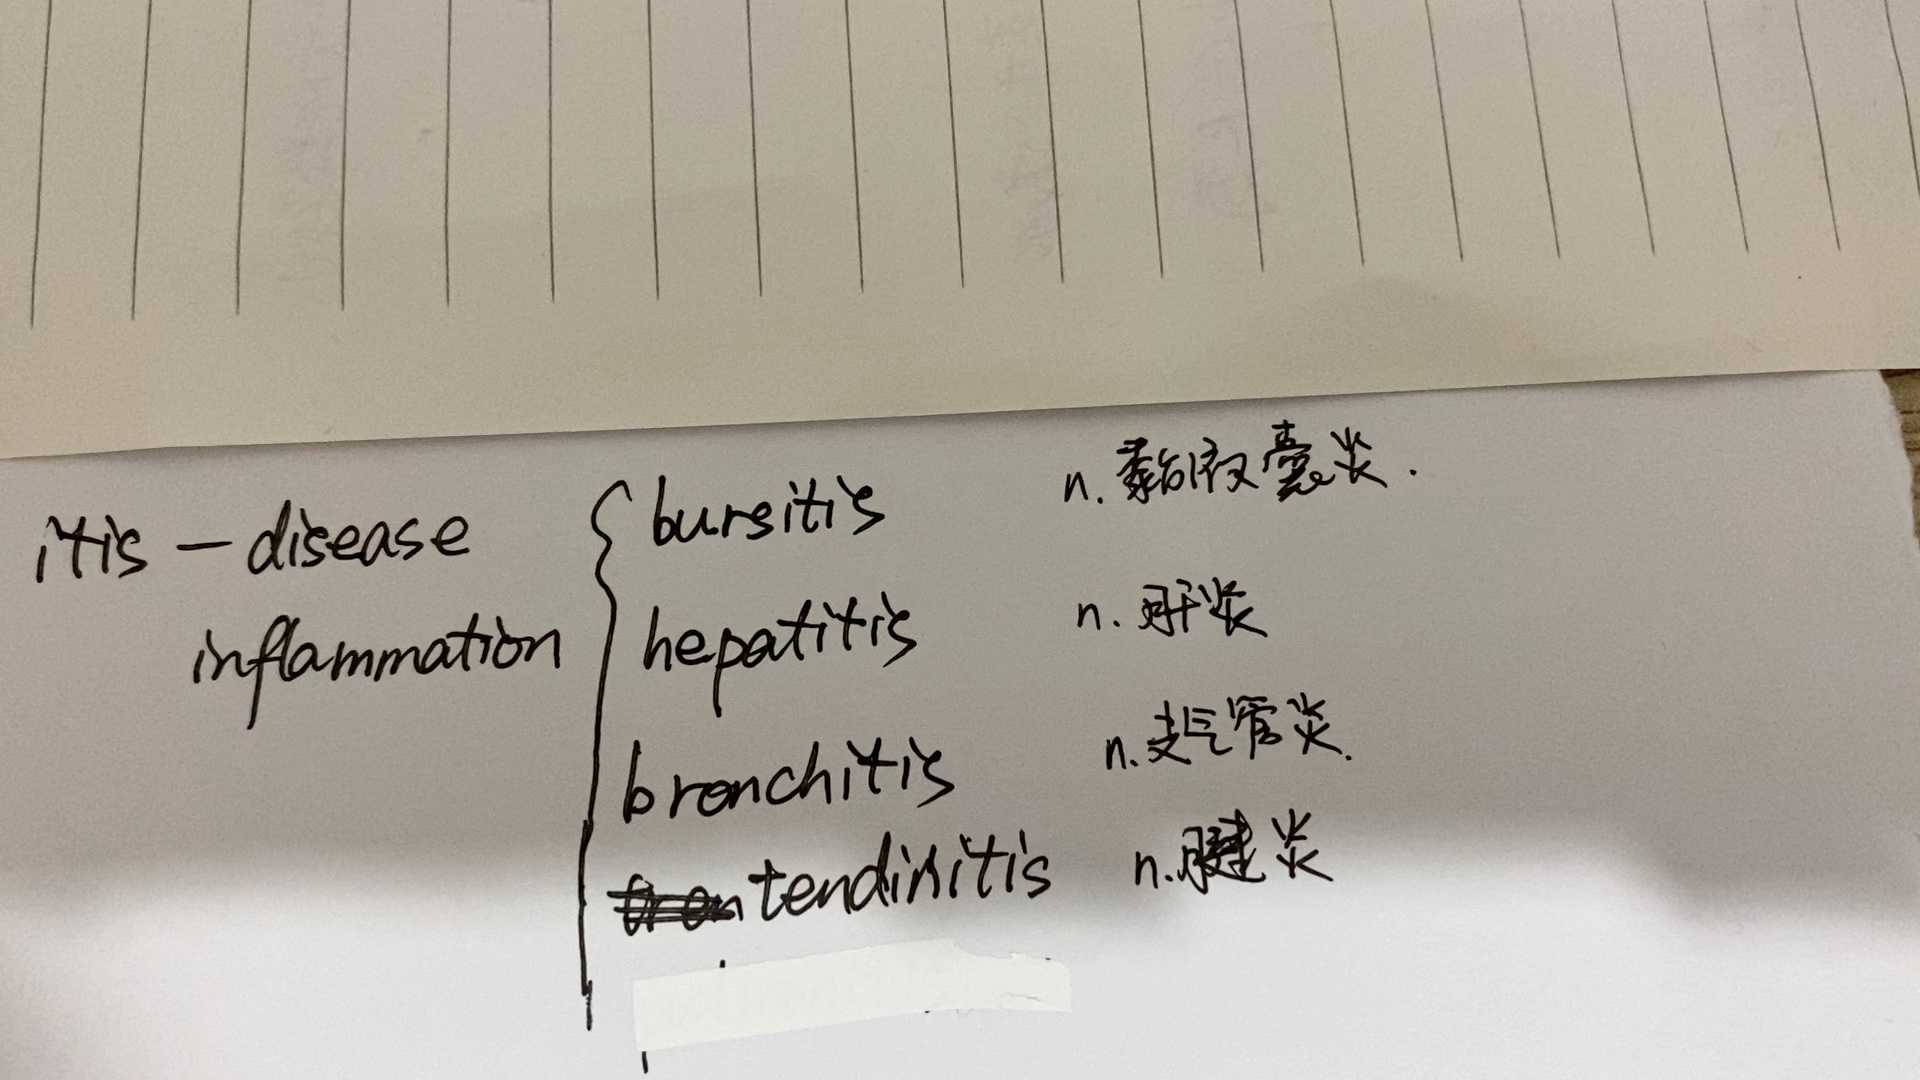 itis – disease { bursitis n. 黏液囊炎.
inflammation hepatitis n. 肝炎
bronchitis n. 支气管炎.
tendinitis n. 腱炎